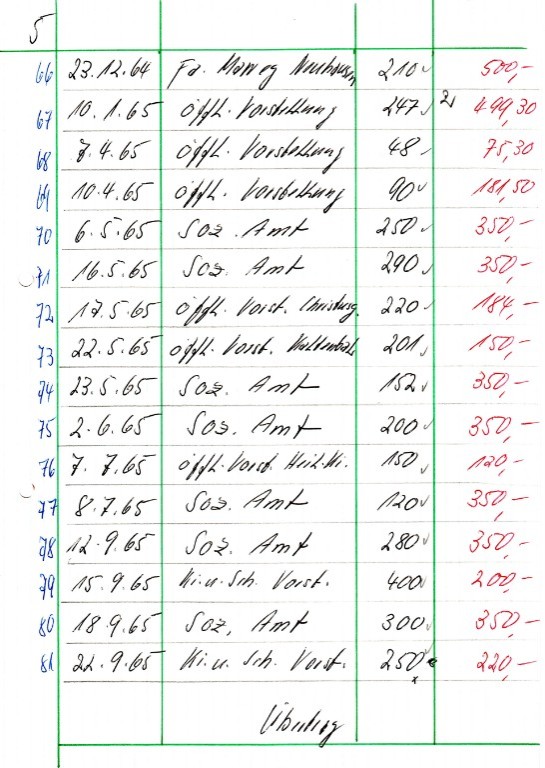 5
66 23.12.64 Fa. 210 500,-
67 10.1.65 öffh. Vorstellung 247 2) 499,30
68 7.4.65 öffh. Vorstellung 48 75,30
69 10.4.65 öffh. Vorstellung 90 181,50
70 6.5.65 Soz. Amt 250 350,-
71 16.5.65 Soz. Amt 290 350,-
72 17.5.65 öffh. Vorst. 220 184,-
73 22.5.65 öffh. Vorst. 201 150,-
74 23.5.65 Soz. Amt 152 350,-
75 2.6.65 Soz. Amt 200 350,-
76 7.7.65 öffh. Vorst. 150 120,-
77 8.7.65 Soz. Amt 120 350,-
78 12.9.65 Soz. Amt 280 350,-
79 15.9.65 Ki.u.Sch. Vorst. 400 200,-
80 18.9.65 Soz. Amt 300 350,-
81 22.9.65 Ki.u. Sch. Vorst. 250 220,-
Übertrag